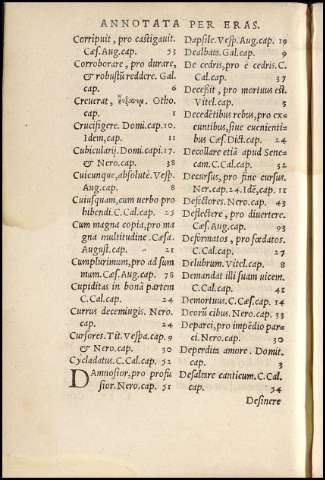 ANNOTATA PER ERAS.
Corripuit, pro castigauit.
Cæs. Aug. cap. 53
Corroborare, pro durare,
& robustū reddere. Gal.
cap. 6
Creuerat, Otho.
cap. 1
Crucifigere. Domi. cap. 10.
Idem, cap. 11
Cubicularij. Domi. capi. 17.
& Nero. cap. 38
Cuicunque, absolute. Vesp.
Aug. cap. 8
Cuiusquam, cum uerbo pro
hibendi. C. Cal. cap. 25
Cum magna copia, pro ma
gna multitudine Cæsa.
August. cap. 21
Cumplurimum, pro ad sum
mum. Cæs. Aug. cap. 78
Cupiditas in bonā partem
C. Cal. cap. 24
Currus decemiugis. Nero.
cap. 24
Cursores. Tit. Vespa. cap. 9
& Nero. cap. 30
Cycladatus. C. Cal. cap. 52
DAmnosior, pro profu
sior. Nero. cap. 51
Dapsile. Vesp. Aug. cap. 19
Dealbati. Gal. cap. 9
De cris, pro è cedris. C.
Cal. cap. 37
Decessit, pro mortuus est.
Vitel. cap. 5
Decedētibus rebus, pro ex
euntibus, siue euenienti
bus Cæs. Dict. cap. 24
Decollare etiā apud Sene
cam. C. Cal. cap. 32
Decursus, pro fine cursus.
Ner. cap. 24. Idē, cap. 11
Defictores. Nero. cap. 43
Deflectere, pro diuertere.
Cæs. Aug. cap. 93
Deformatos, pro fœdatos.
C. Cal. cap. 27
Delubrum. Vitel. cap. 8
Demandat illi suam uicem.
C. Cal. cap. 41
Demortuus. C. Cæs. cap. 14
Deorū cibus. Nero. cap. 33
Deparci, pro impēdio par
ci. Nero. cap. 30
Deperditi amore. Domit.
cap. 3
Desaltare canticum. C. Cal.
cap. 54
Desinere